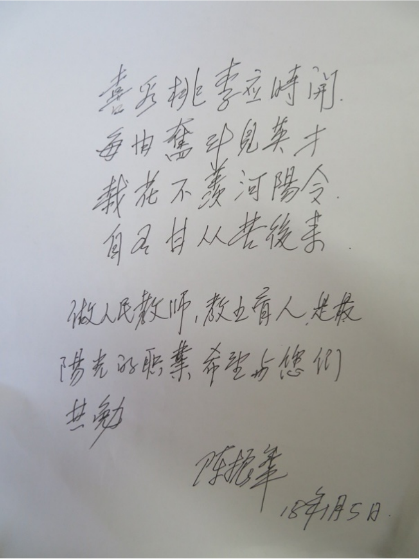 喜看桃李应時開.
每由奮斗見英才
栽花不羨河陽令.
自有甘从苦後来.
做人民教师,教书育人,是最
陽光的职業希望与您们
共勉
陈振華
18年1月5日.